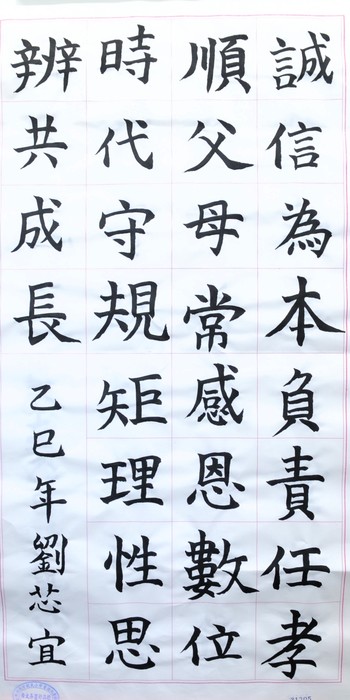 誠信為本負責任孝
順父母常感恩數位
時代守規矩理性思
辨共成長
乙巳年劉芯宜